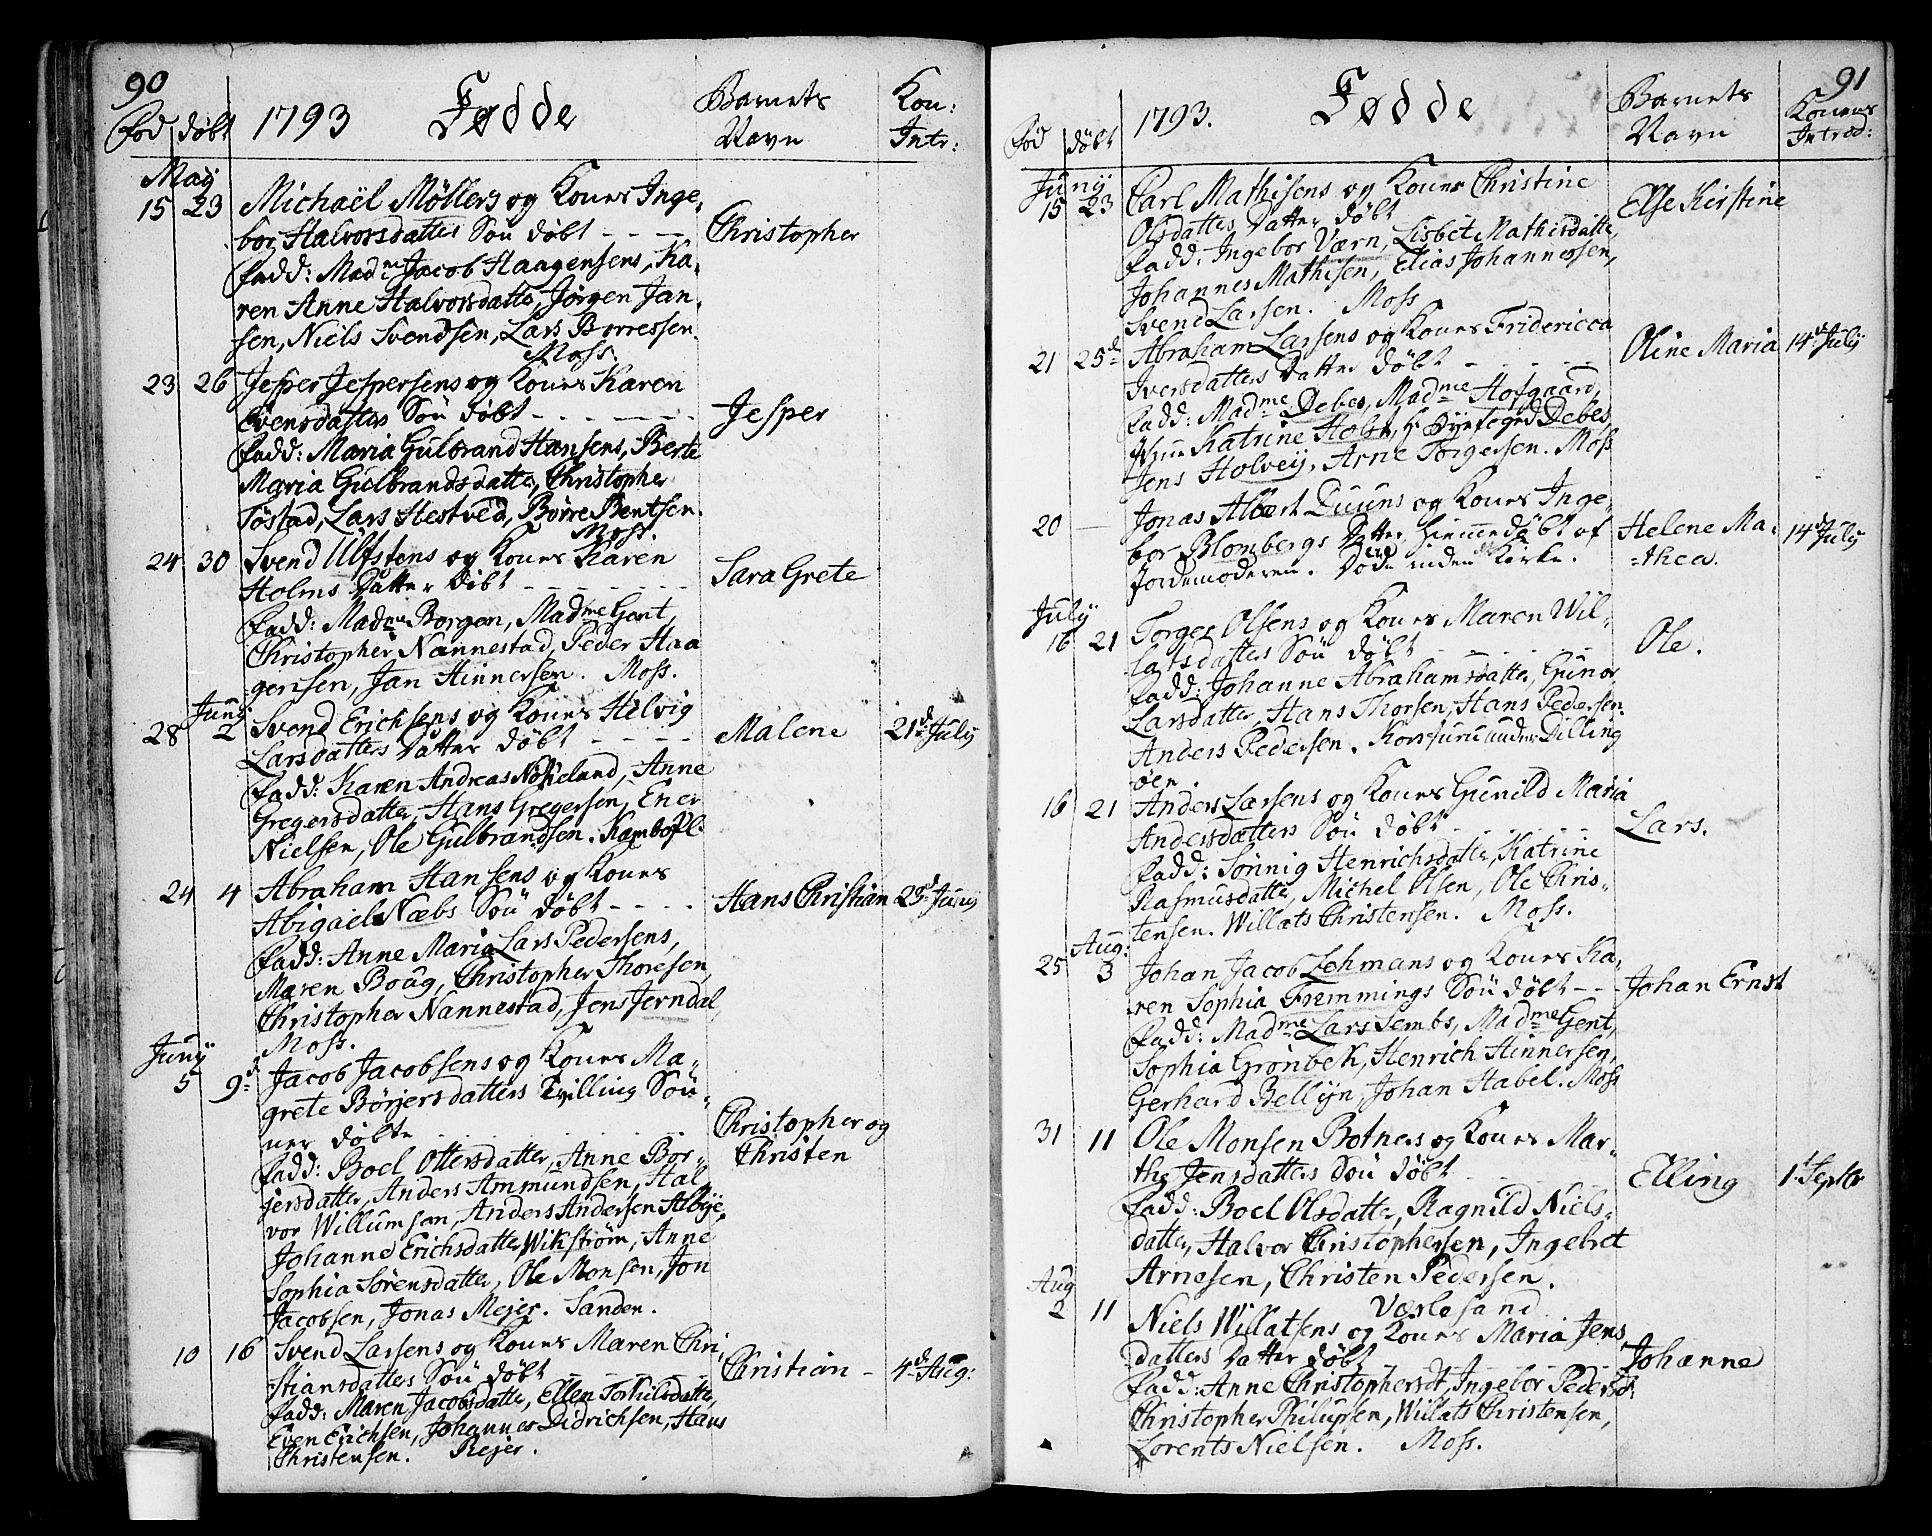 90
Fød døbt 1793 Fødde Barnets Navn Kon: Intr:
May
15 23 Michaël Möllers og Kones Inge-
bor Halvorsdatters Søn døbt - - - - Christopher
Fadd: Madme Jacob Haagensens, Ka-
ren Anne Halvorsdatter, Jørgen Jan-
sen, Niels Svendsen, Lars Børressen.
Moss.
23 26 Jesper Jespersens og Kones Karen
Evensdatters Søn døbt - - - - - - Jesper
Fadd: Maria Gulbrand Hansens, Berte
Maria Gulbrandsdatter, Christopher
Töstad, Lars Hestved, Børre Bentsen.
Moss.
24 30 Svend Ulfstens og Kones Karen
Holms Datter døbt - - - - - - Sara Grete
Fadd: Madme Borgen, Madme Gent,
Christopher Nannestad, Peder Haa
gensen, Jan Hinnersen. Moss.
Juny
28 2 Svend Erichsens og Kones Helvig
Larsdatters Datter døbt - - - - Malene 21d July
Fadd: Karen Andreas Nökeland, Anne
Gregersdatter, Hans Gregersen, Ener
Nielsen, Ole Gulbrandsen. Kambo Pl:
24 4 Abraham Hansens og Kones
Abigael Næbs Søn døbt - - - - Hans Christian 23d Juny
Fadd: Anne Maria Lars Pedersens,
Maren Boug, Christopher Thoresen,
Christopher Nannestad, Jens Jerndal,
Moss.
Juny
5 9d Jacob Jacobsens og Kones Ma-
grete Börjersdatters Tvilling Søn-
ner døbte Christopher og
Christen
Fadd: Boel Ottersdatter, Anne Bör-
jersdatter, Anders Ammundsen, Hal
vor Willumsen, Anders Andersen Albye,
Johanne Erichsdatter Wikström, Anne
Sophia Sörensdatter, Ole Monsen, Jon
Jacobsen, Jonas Mejer. Sanden.
10 16 Svend Larsens og Kones Maren Chri-
stiansdatters Søn døbt Christian - 4d Aug:
Fadd: Maren Jacobsdatter, Ellen Torkilsdatter,
Even Erichsen, Johannes Didrichsen, Hans
Christensen. Rejer.
91
Fød døbt 1793. Fødde Barnets Navn Konens Introd:
Juny
15 23 Carl Mathisens og Kones Christine
Olsdatters Datter døbt Else Kirstine
Fadd: Ingebor Værn, Lisbet Mathisdatter,
Johannes Mathisen, Elias Johannessen,
Svend Larsen. Moss
21 25d Abraham Larsens og Kones Fridericca
Iversdatters Datter døbt - - - - Oline Maria 14d July
Fadd: Madme Debes, Madme Hofgaard,
Katrine Holst, Hr Byefogd Debes,
Jens Holveÿ, Arne Torgersen. Moss
20 - Jonas Albert Duuns og Kones Inge-
bor Blombergs Datter hiemmedøbt af Helene Ma-
thea. 14d July
Jordemoderen. Døde inden Kirke.
July
16 21 Torger Olsens og Kones Maren Wil-
latsdatters Søn døbt Ole.
Fadd: Johanne Abrahamsdatter, Gunor
Larsdatter, Hans Thorsen, Hans Pedersen.
Anders Pedersen. under Dilling
öen
16 21 Anders Larsens og Kones Gunild Maria
Andersdatters Søn døbt Lars.
Fadd: Sönnig Henrichsdatter, Katrine
Rasmusdatter, Michel Olsen, Ole Chris-
tensen. Willats Christensen. Moss.
Aug:
25 3 Johan Jacob Lehmans og Kones Ka-
ren Sophia Fremmings Søn døbt - - - Johan Ernst
Fadd: Madme Lars Sembs, Madme Gent,
Sophia Grönbek, Henrich Hinnersen,
Gerhard Bellijn, Johan Stabel. Moss
31 11 Ole Monsen Botners og Kones Mar-
the Jensdatters Søn døbt Elling 1t Septbr
Fadd: Boel Olsdatter, Ragnild Niels-
datter, Halvor Christophersen, Ingebret
Arnesen, Christen Pedersen.
Værlesand
Aug
2 11 Niels Willatsens og Kones Maria Jens
datters Datter døbt Johanne
Fadd: Anne Christophersdt, Ingebor Pedersdt.
Christopher Philupsen, Willats Christensen,
Lorents Nielsen. Moss.